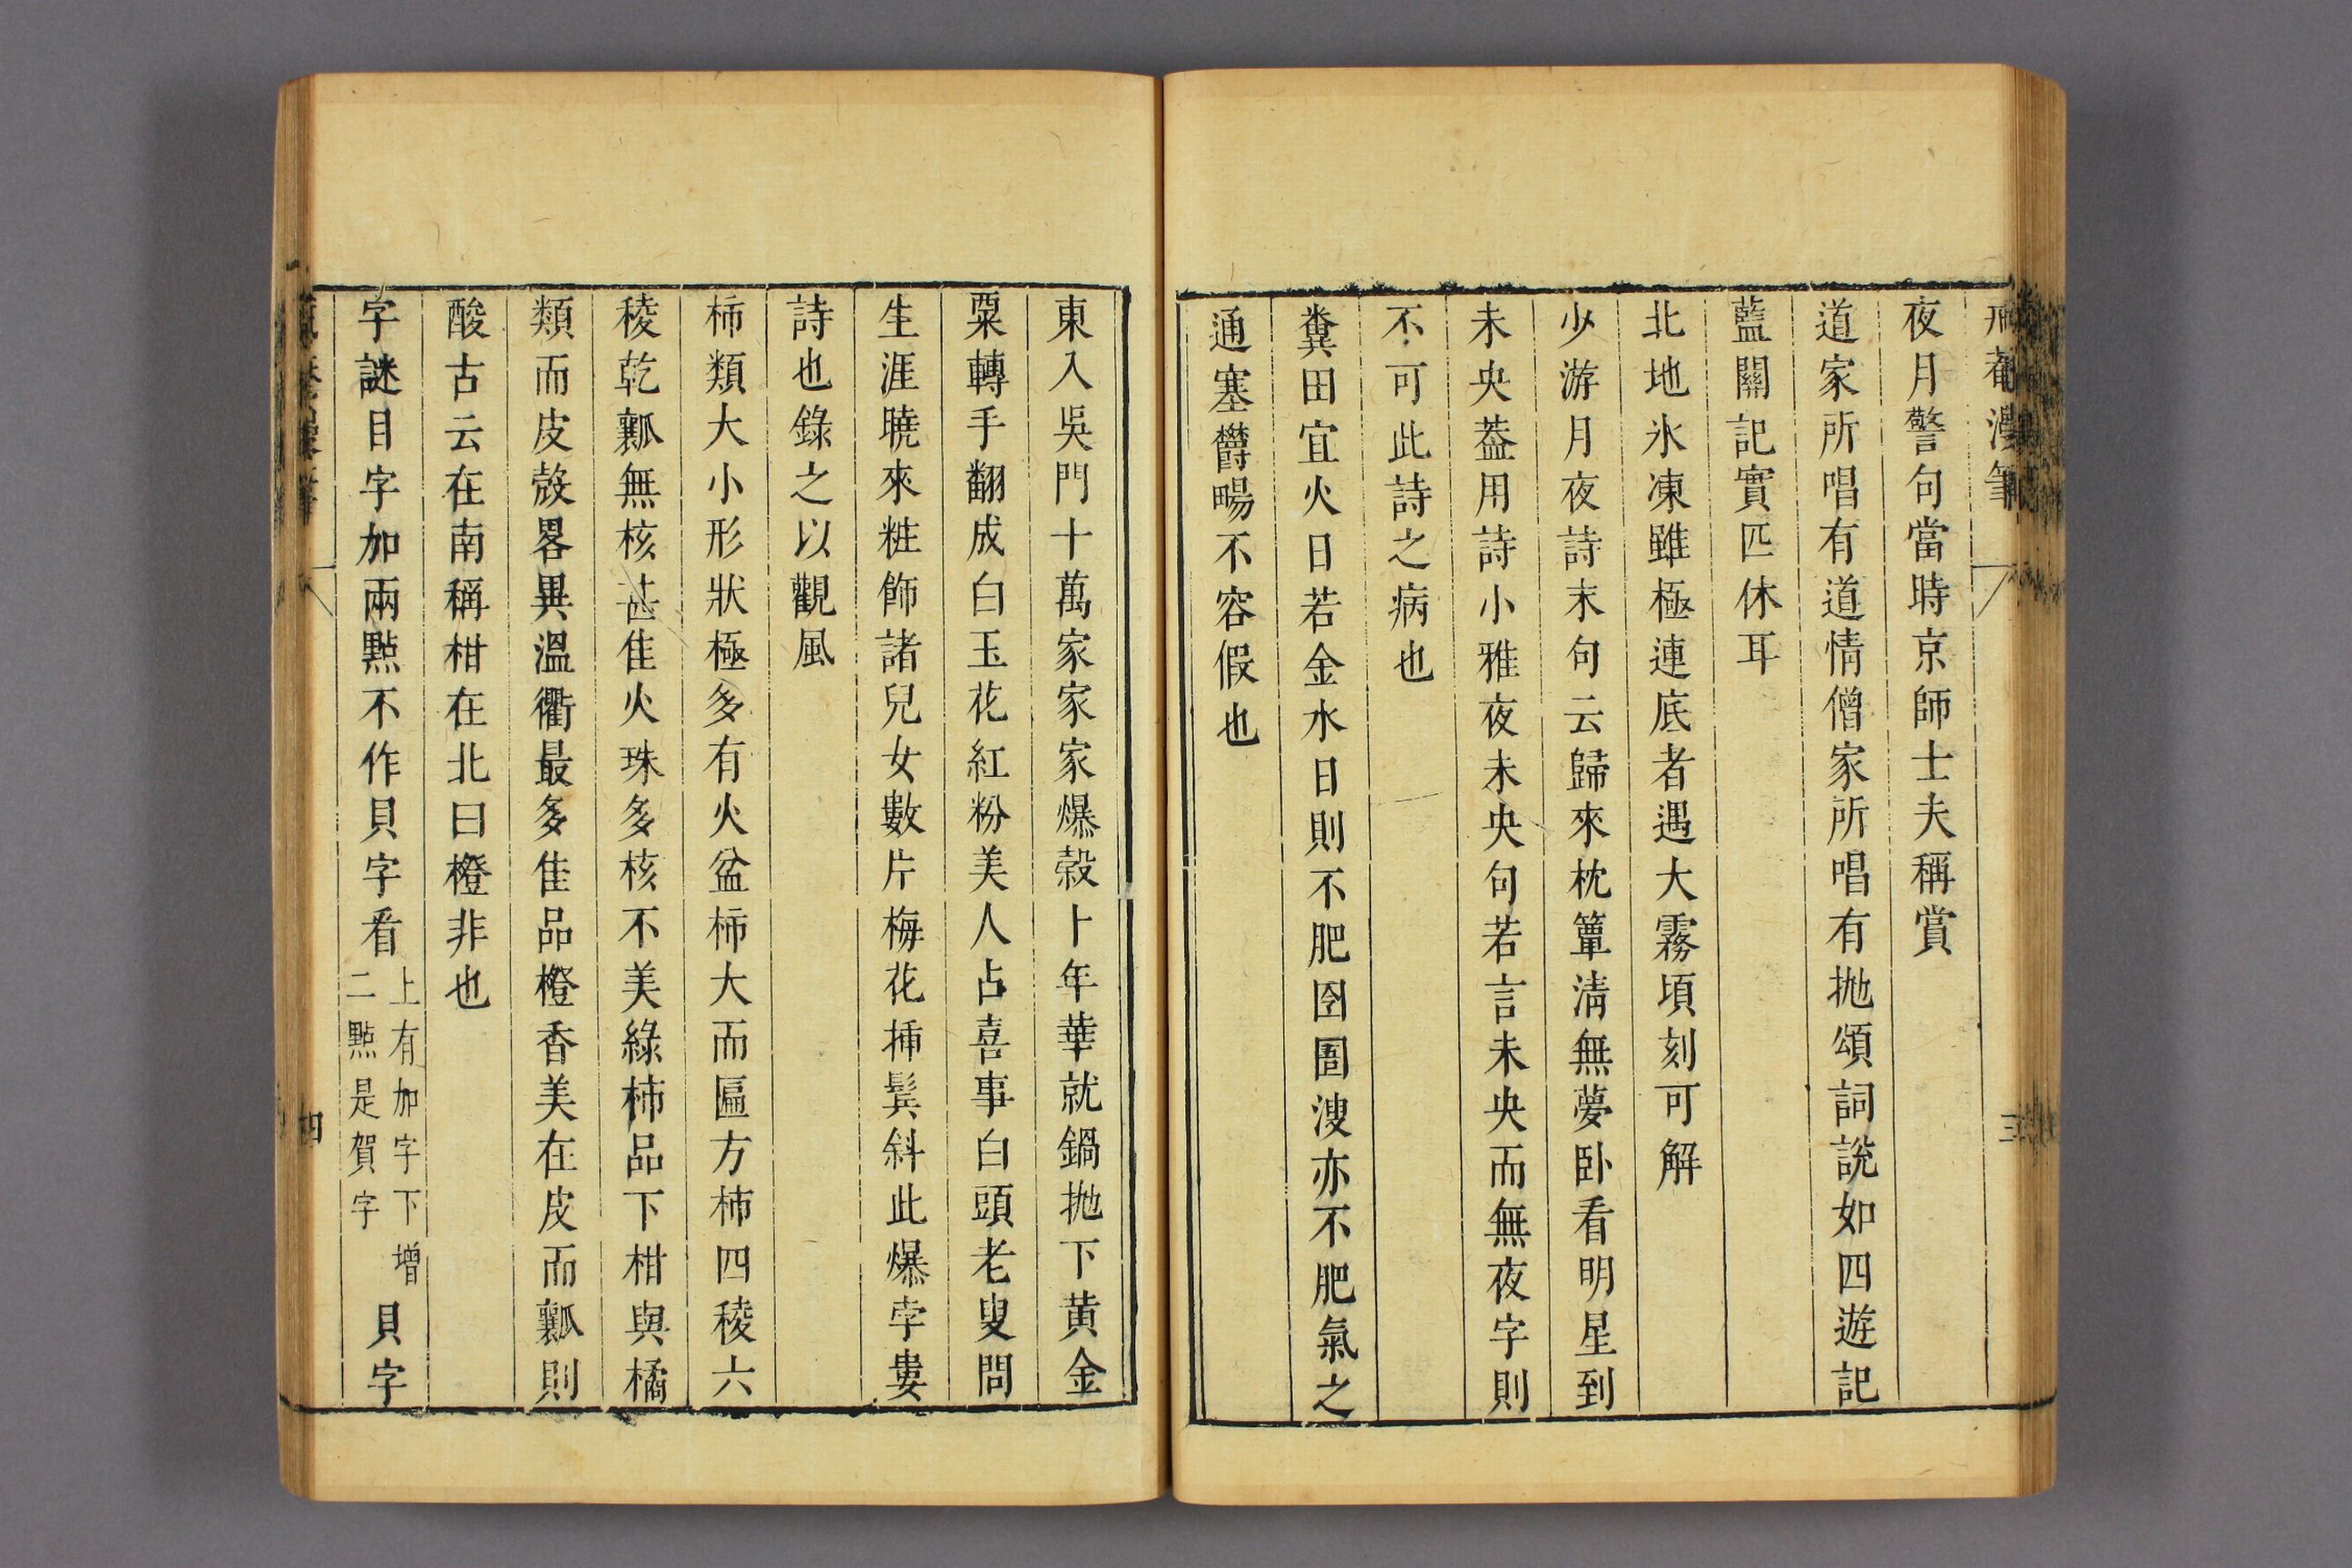 菴漫筆
三
夜月警句當時京師士夫稱賞
道家所唱有道情僧家所唱有抛頌詞說如四遊記
藍關記實匹休耳
北地氷凍雖極連底者遇大霧頃刻可解
少游月夜詩末句云歸來枕簟淸無夢卧看明星到
未央葢用詩小雅夜未央句若言未央而無夜字則
不可此詩之病也
糞田宜火日若金水日則不肥囹圄溲亦不肥氣之
通塞欝暢不容假也
東入吳門十萬家家家爆榖卜年華就鍋抛下黄金
粟轉手翻成白玉花紅粉美人占喜事白頭老叟問
生涯曉來粧飾諸兒女數片梅花揷鬂斜此爆孛婁
詩也錄之以觀風
柿類大小形狀極多有火盆柿大而匾方柿四稜六
稜乾瓤無核甚佳火珠多核不美綠柿品下柑與橘
類而皮殼畧異溫衢最多佳品橙香美在皮而瓤則
酸古云在南稱柑在北曰橙非也
字謎目字加兩㸃不作貝字看上有加字下增二㸃是賀字貝字
四